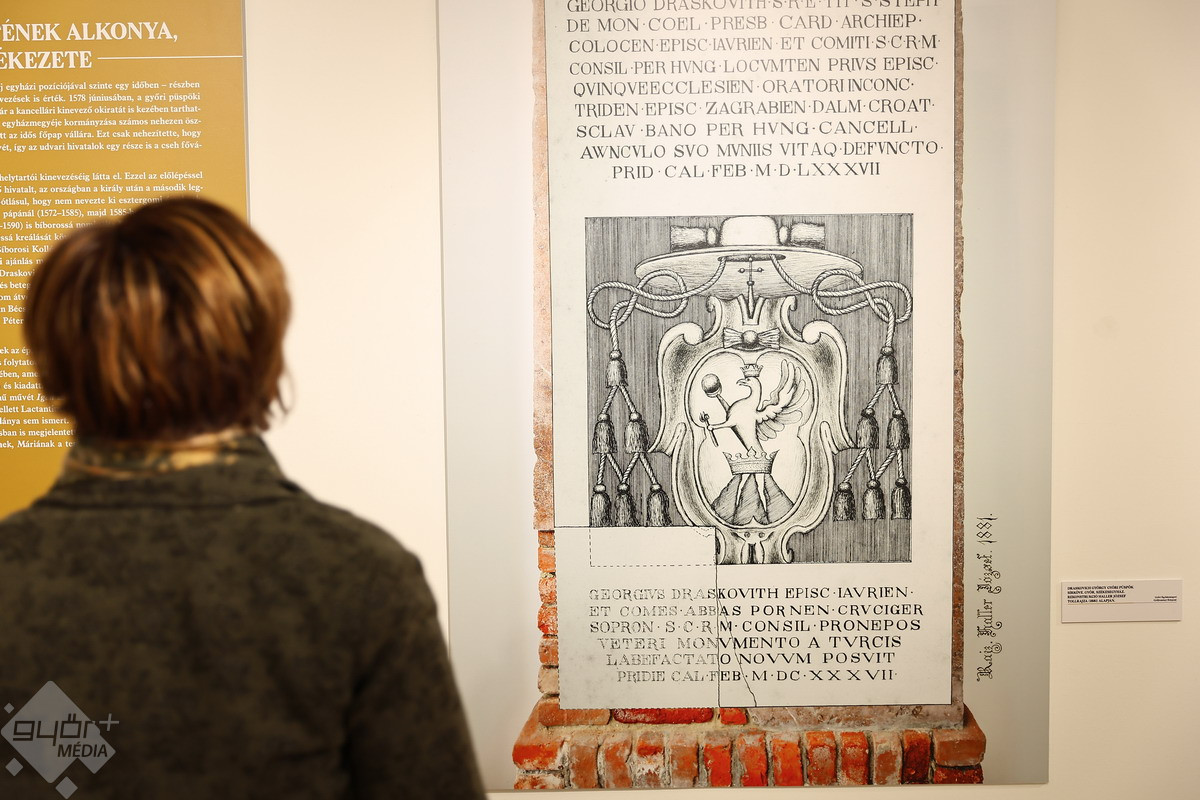 TÉNEK ALKONYA,
ÉKEZETE
j egyházi pozíciójával szinte egy időben – részben
vezések is érték. 1578 júniusában, a győri püspöki
ár a kancellári kinevező okiratát is kezében tarthat-
egyházmegyéje kormányzása számos nehezen ösz-
tt az idős főpap vállára. Ezt csak nehezítette, hogy
vét, így az udvari hivatalok egy része is a cseh fővá-
helytartói kinevezéséig látta el. Ezzel az előlépéssel
hivatalt, az országban a király után a második leg-
ótlásul, hogy nem nevezte ki esztergomi
pápánál (1572–1585), majd 1585
–1590) is bíborossá
ssá kreálását
Bíborosi Koll
i ajánlás
Draskov
és beteg
om átv
n Bécs
Péter
ek az ép
folytato
ében, am
és kiadatt
mű művét
ellett Lactant
lánya sem ismert
sban is megjelentet
nek, Máriának a te
GEORGIO DRASKOVITH·S·R·E·TIT·S·STEPH
DE MON·COEL·PRESB·CARD·ARCHIEP·
COLOCEN·EPISC·IAVRIEN·ET COMITI·S·C·R·M·
CONSIL·PER HVNG·LOCVMTEN PRIVS EPISC·
QVINQVEECCLESIEN·ORATORI INCONC·
TRIDEN·EPISC·ZAGRABIEN·DALM·CROAT·
SCLAV·BANO PER HVNG·CANCELL·
AWNCVLO SVO MVNIIS VITAQ·DEFVNCTO·
PRID·CAL·FEB·M·D·LXXXVII
GEORGIVS DRASKOVITH EPISC·IAVRIEN·
ET COMES·ABBAS PORNEN·CRVCIGER
SOPRON·S·C·R·M·CONSIL·PRONEPOS
VETERI MONVMENTO A TVRCIS
LABEFACTATO NOVVM POSVIT
PRIDIE CAL·FEB·M·DC·XXXVII·
Rajz. Haller József. 1881.
DRASKOVICH GYÖRGY GYŐRI PÜSPÖK
SÍRKÖVE. GYŐR, SZÉKESEGYHÁZ.
REKONSTRUKCIÓ HALLER JÓZSEF
TOLLRAJZA (1881) ALAPJÁN.
győr+
MÉDIA